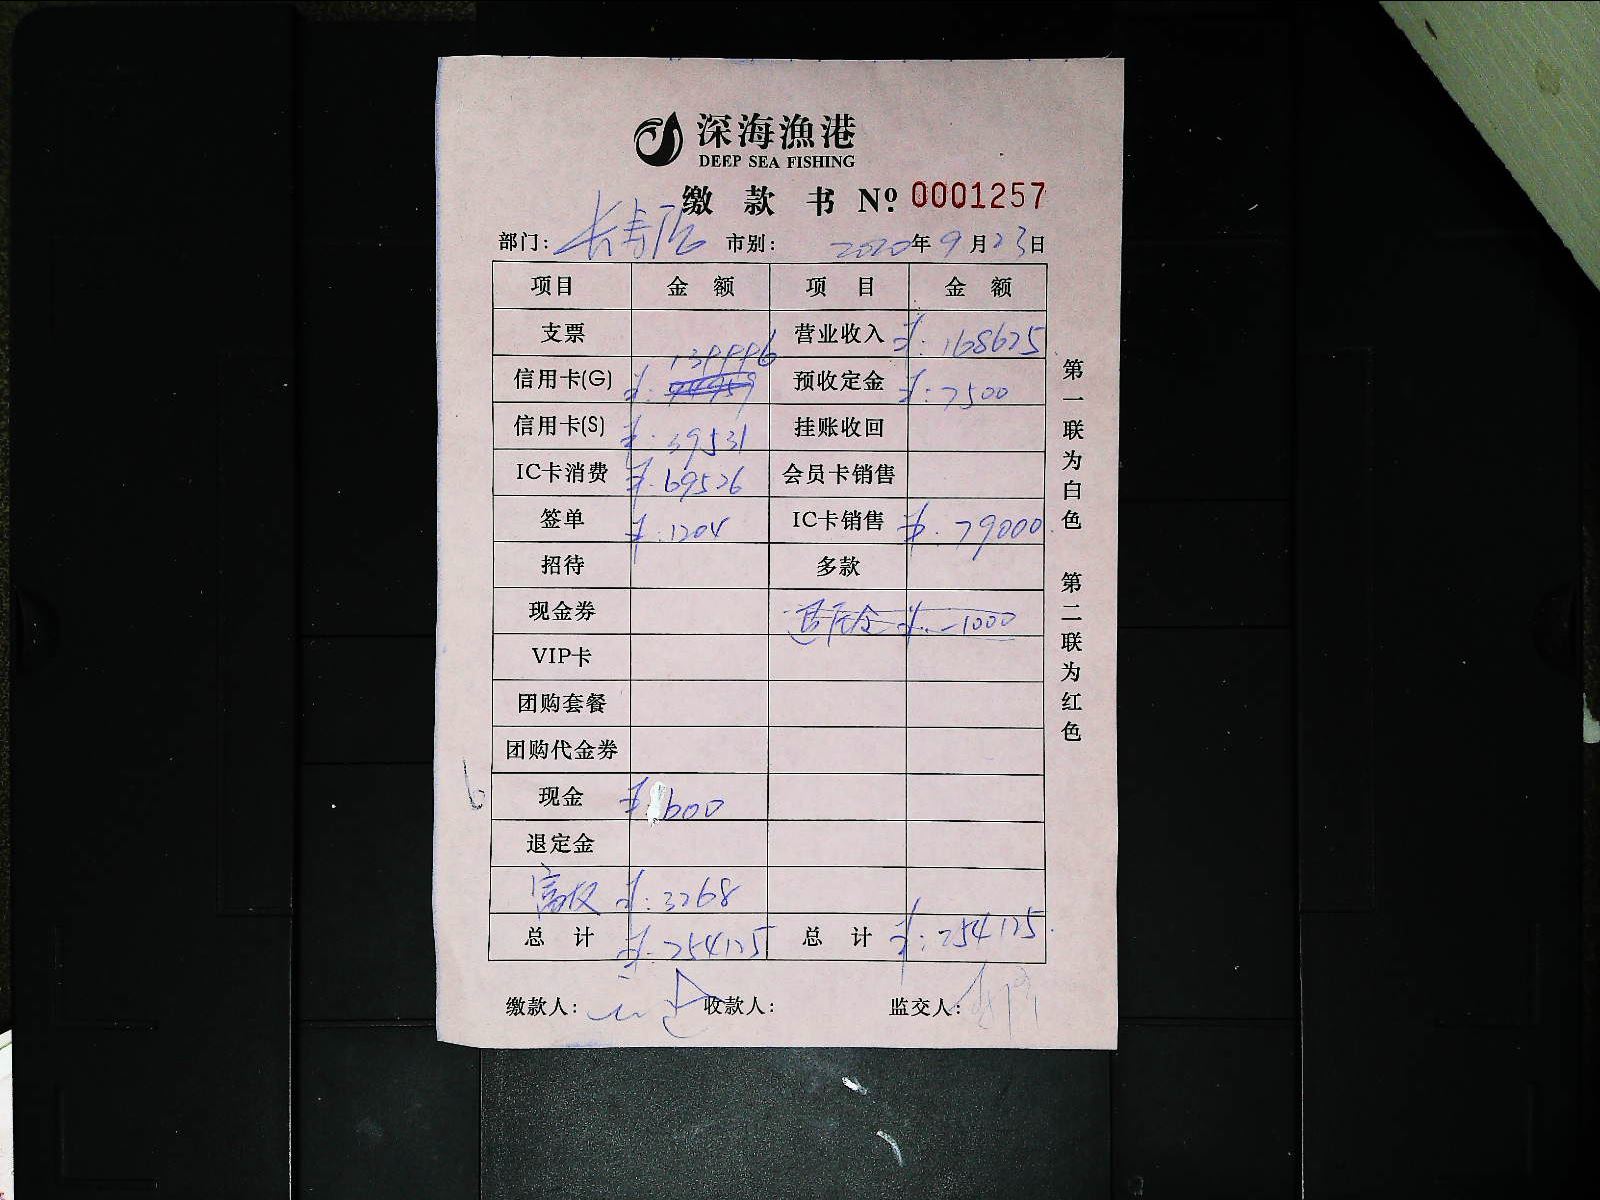 深海漁港
DEEP SEA FISHING
缴 款 书 Nº 0001257
部门: 长寿店 市别: 2020年9月23日
项目 金 额 项 目 金 额
支票 营业收入 ¥:168625
信用卡(G) ¥: 139996 预收定金 ¥:7500
信用卡(S) ¥:39531 挂账收回
IC卡消费 ¥:69526 会员卡销售
签单 ¥:1204 IC卡销售 ¥:79000
招待 多款
现金券 退压金 ¥:-1000
VIP卡
团购套餐
团购代金券
现金 ¥600
退定金
¥:3268
总 计 ¥:254125 总 计 ¥:254125
缴款人: 收款人: 监交人:
第一联为白色 第二联为红色